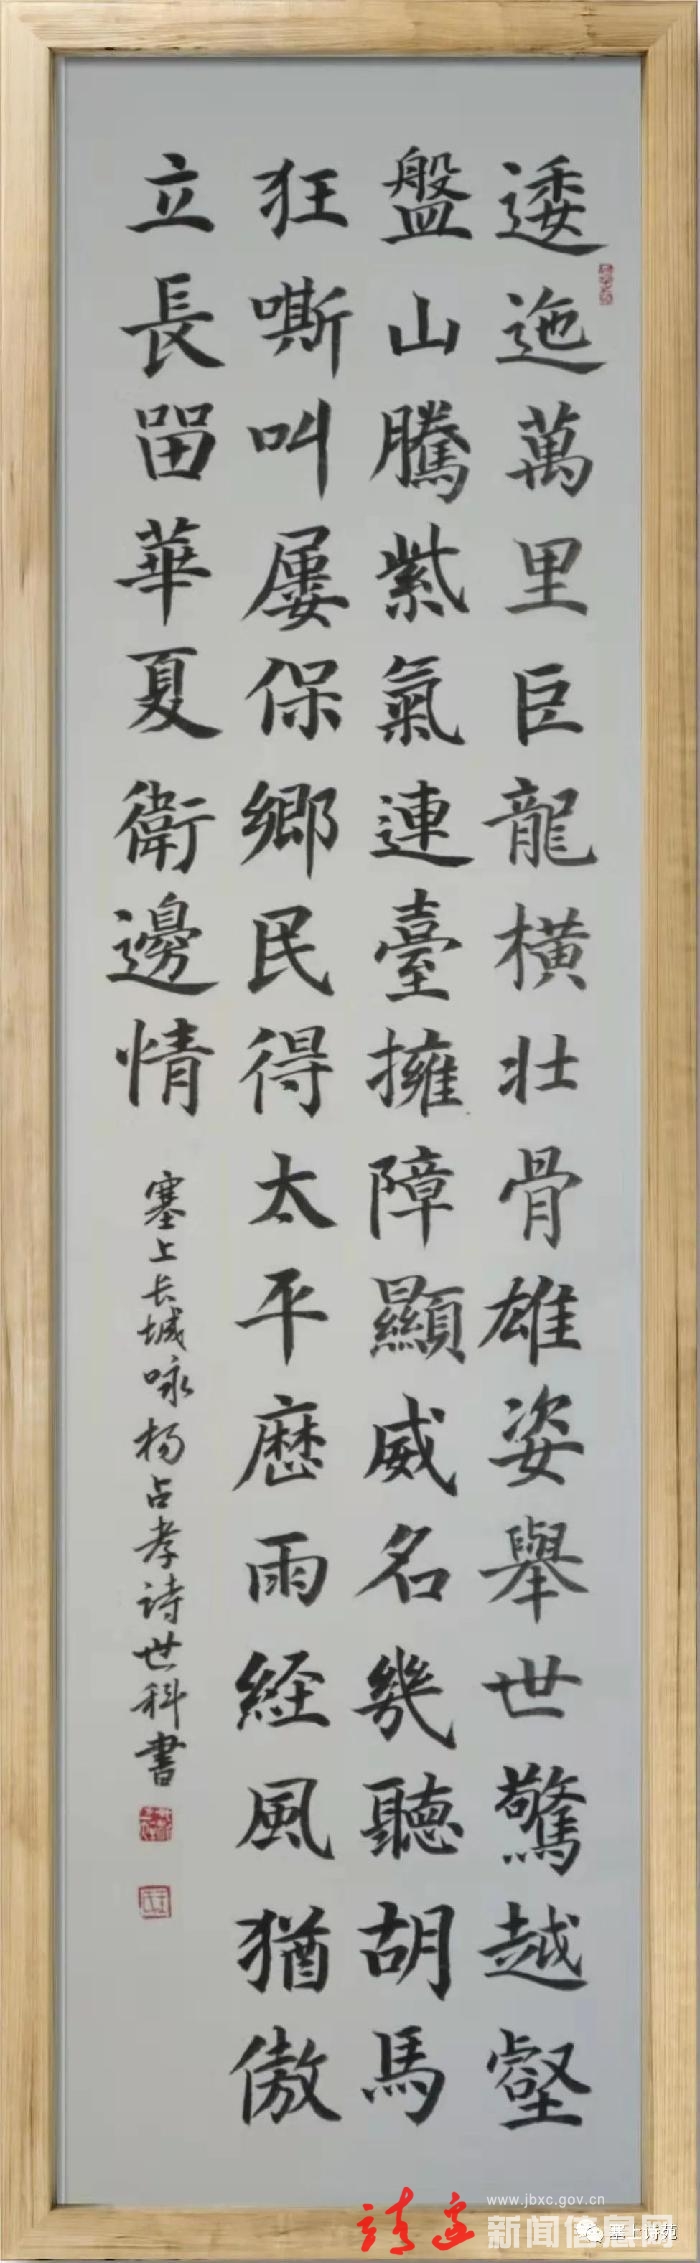 逶迤萬里巨龍橫壯骨雄姿舉世驚越壑
盤山騰紫氣連臺擁障顯威名幾聽胡馬
狂嘶叫屡保鄉民得太平歷雨經風猶傲
立長留華夏衛邊情
塞上长城咏杨占孝诗世科書
www.jbxc.gov.cn
靖边新闻信息网
塞上诗苑